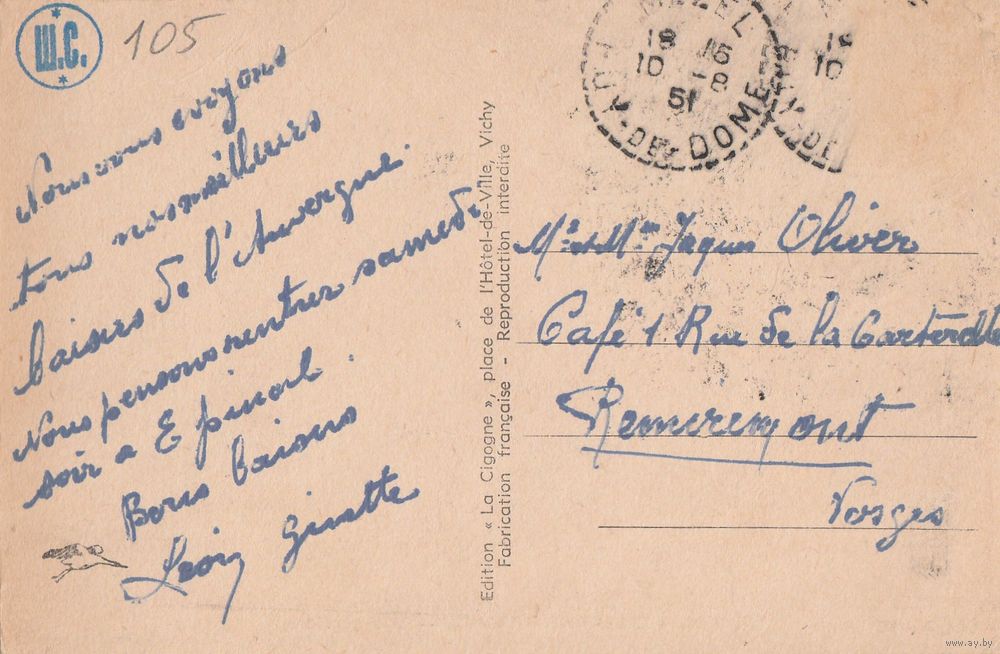 Ш.С.
105
Nous vous envoyons
tous nos meilleurs
baisers de l'Auvergne.
Nous pensons rentrer samedi
soir a Epinal.
Bons baisers
Ginette
Edition « La Cigogne », place de l'Hôtel-de-Ville, Vichy
Fabrication française - Reproduction interdite
MEZEL
18 15
10 -8
51
DE DOME
18
10
Mr et Mme Jaques Olivier
Café 1 Rue de la
Remiremont
Vosges
www.ay.by